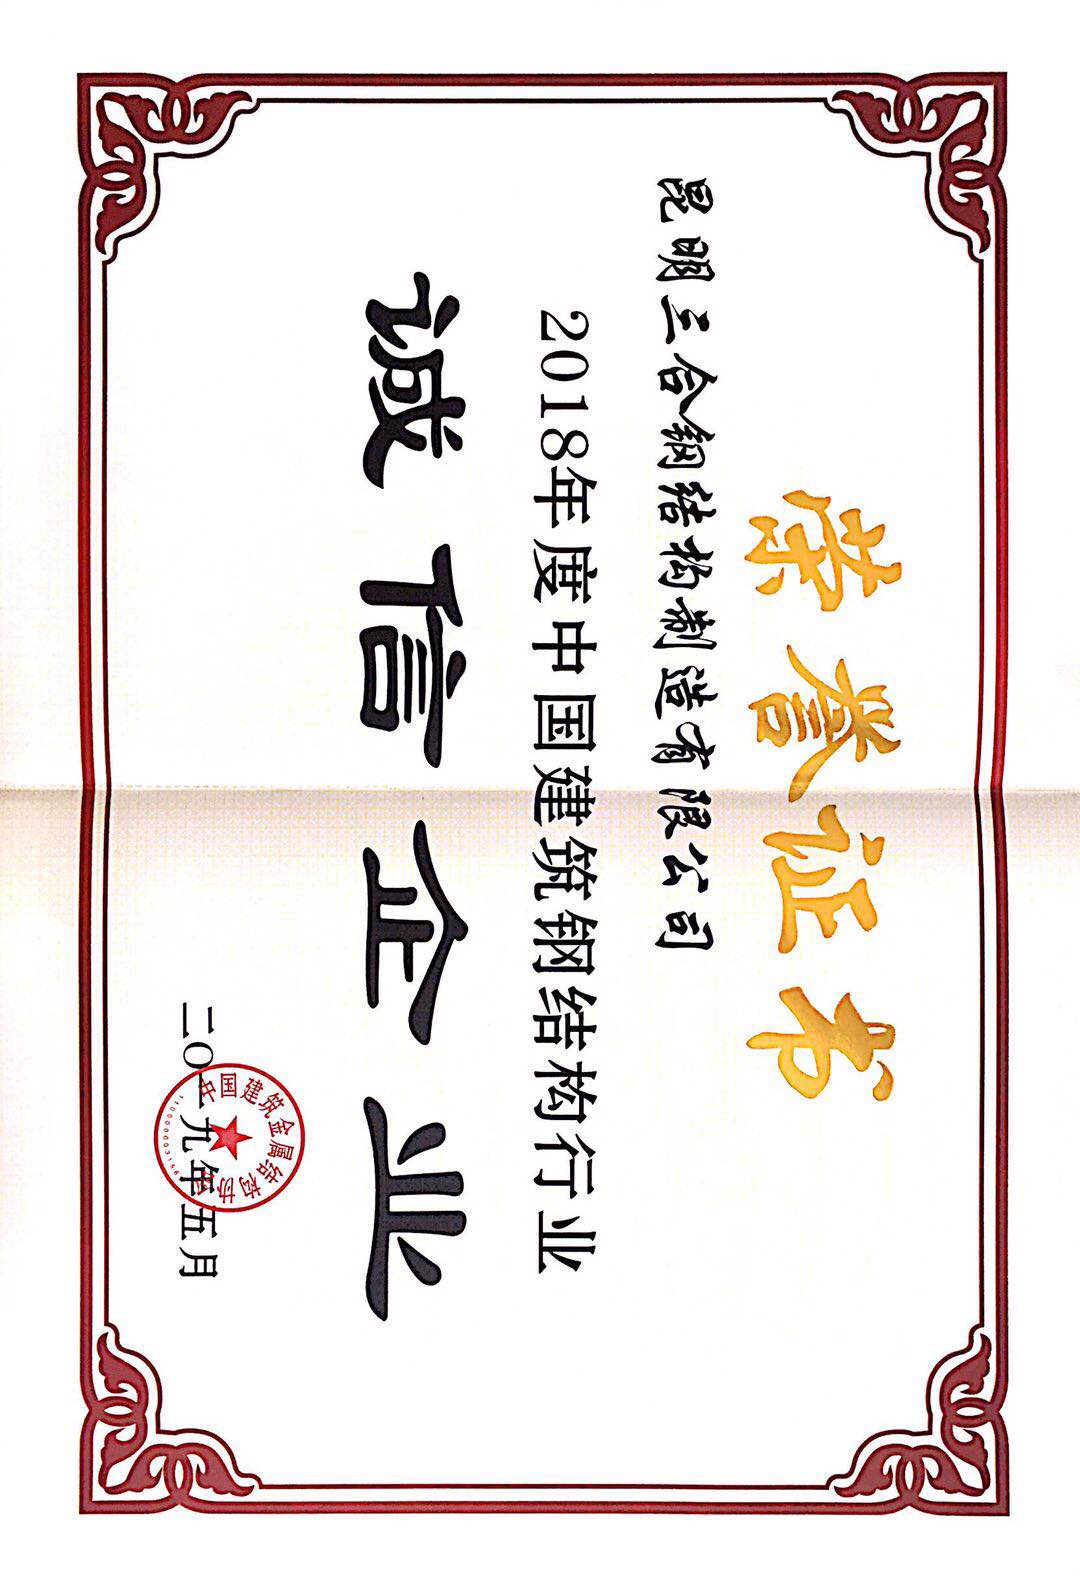 荣誉证书
昆明三合钢结构制造有限公司
2018年度中国建筑钢结构行业
诚信企业
二O一九年五月
中国建筑金属结构协会